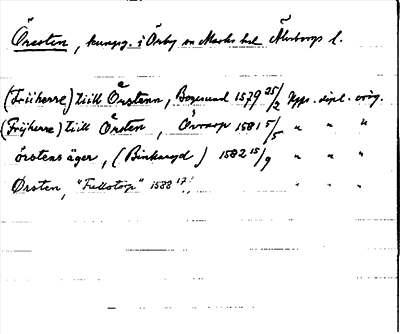 Öresten, kungsg. i Örby sn Marks hd Älvsborgs l.
(Friiherre) tiill Örstenn, Bogesund 1579 25/2 Upps. dipl. orig.
(Frijherre) till Örsten, Örrarp 1581 5/5 " " "
örstens äger, (Binkaryd) 1582 15/9 " " "
Örsten, "Fullotorp" 1588 " " "